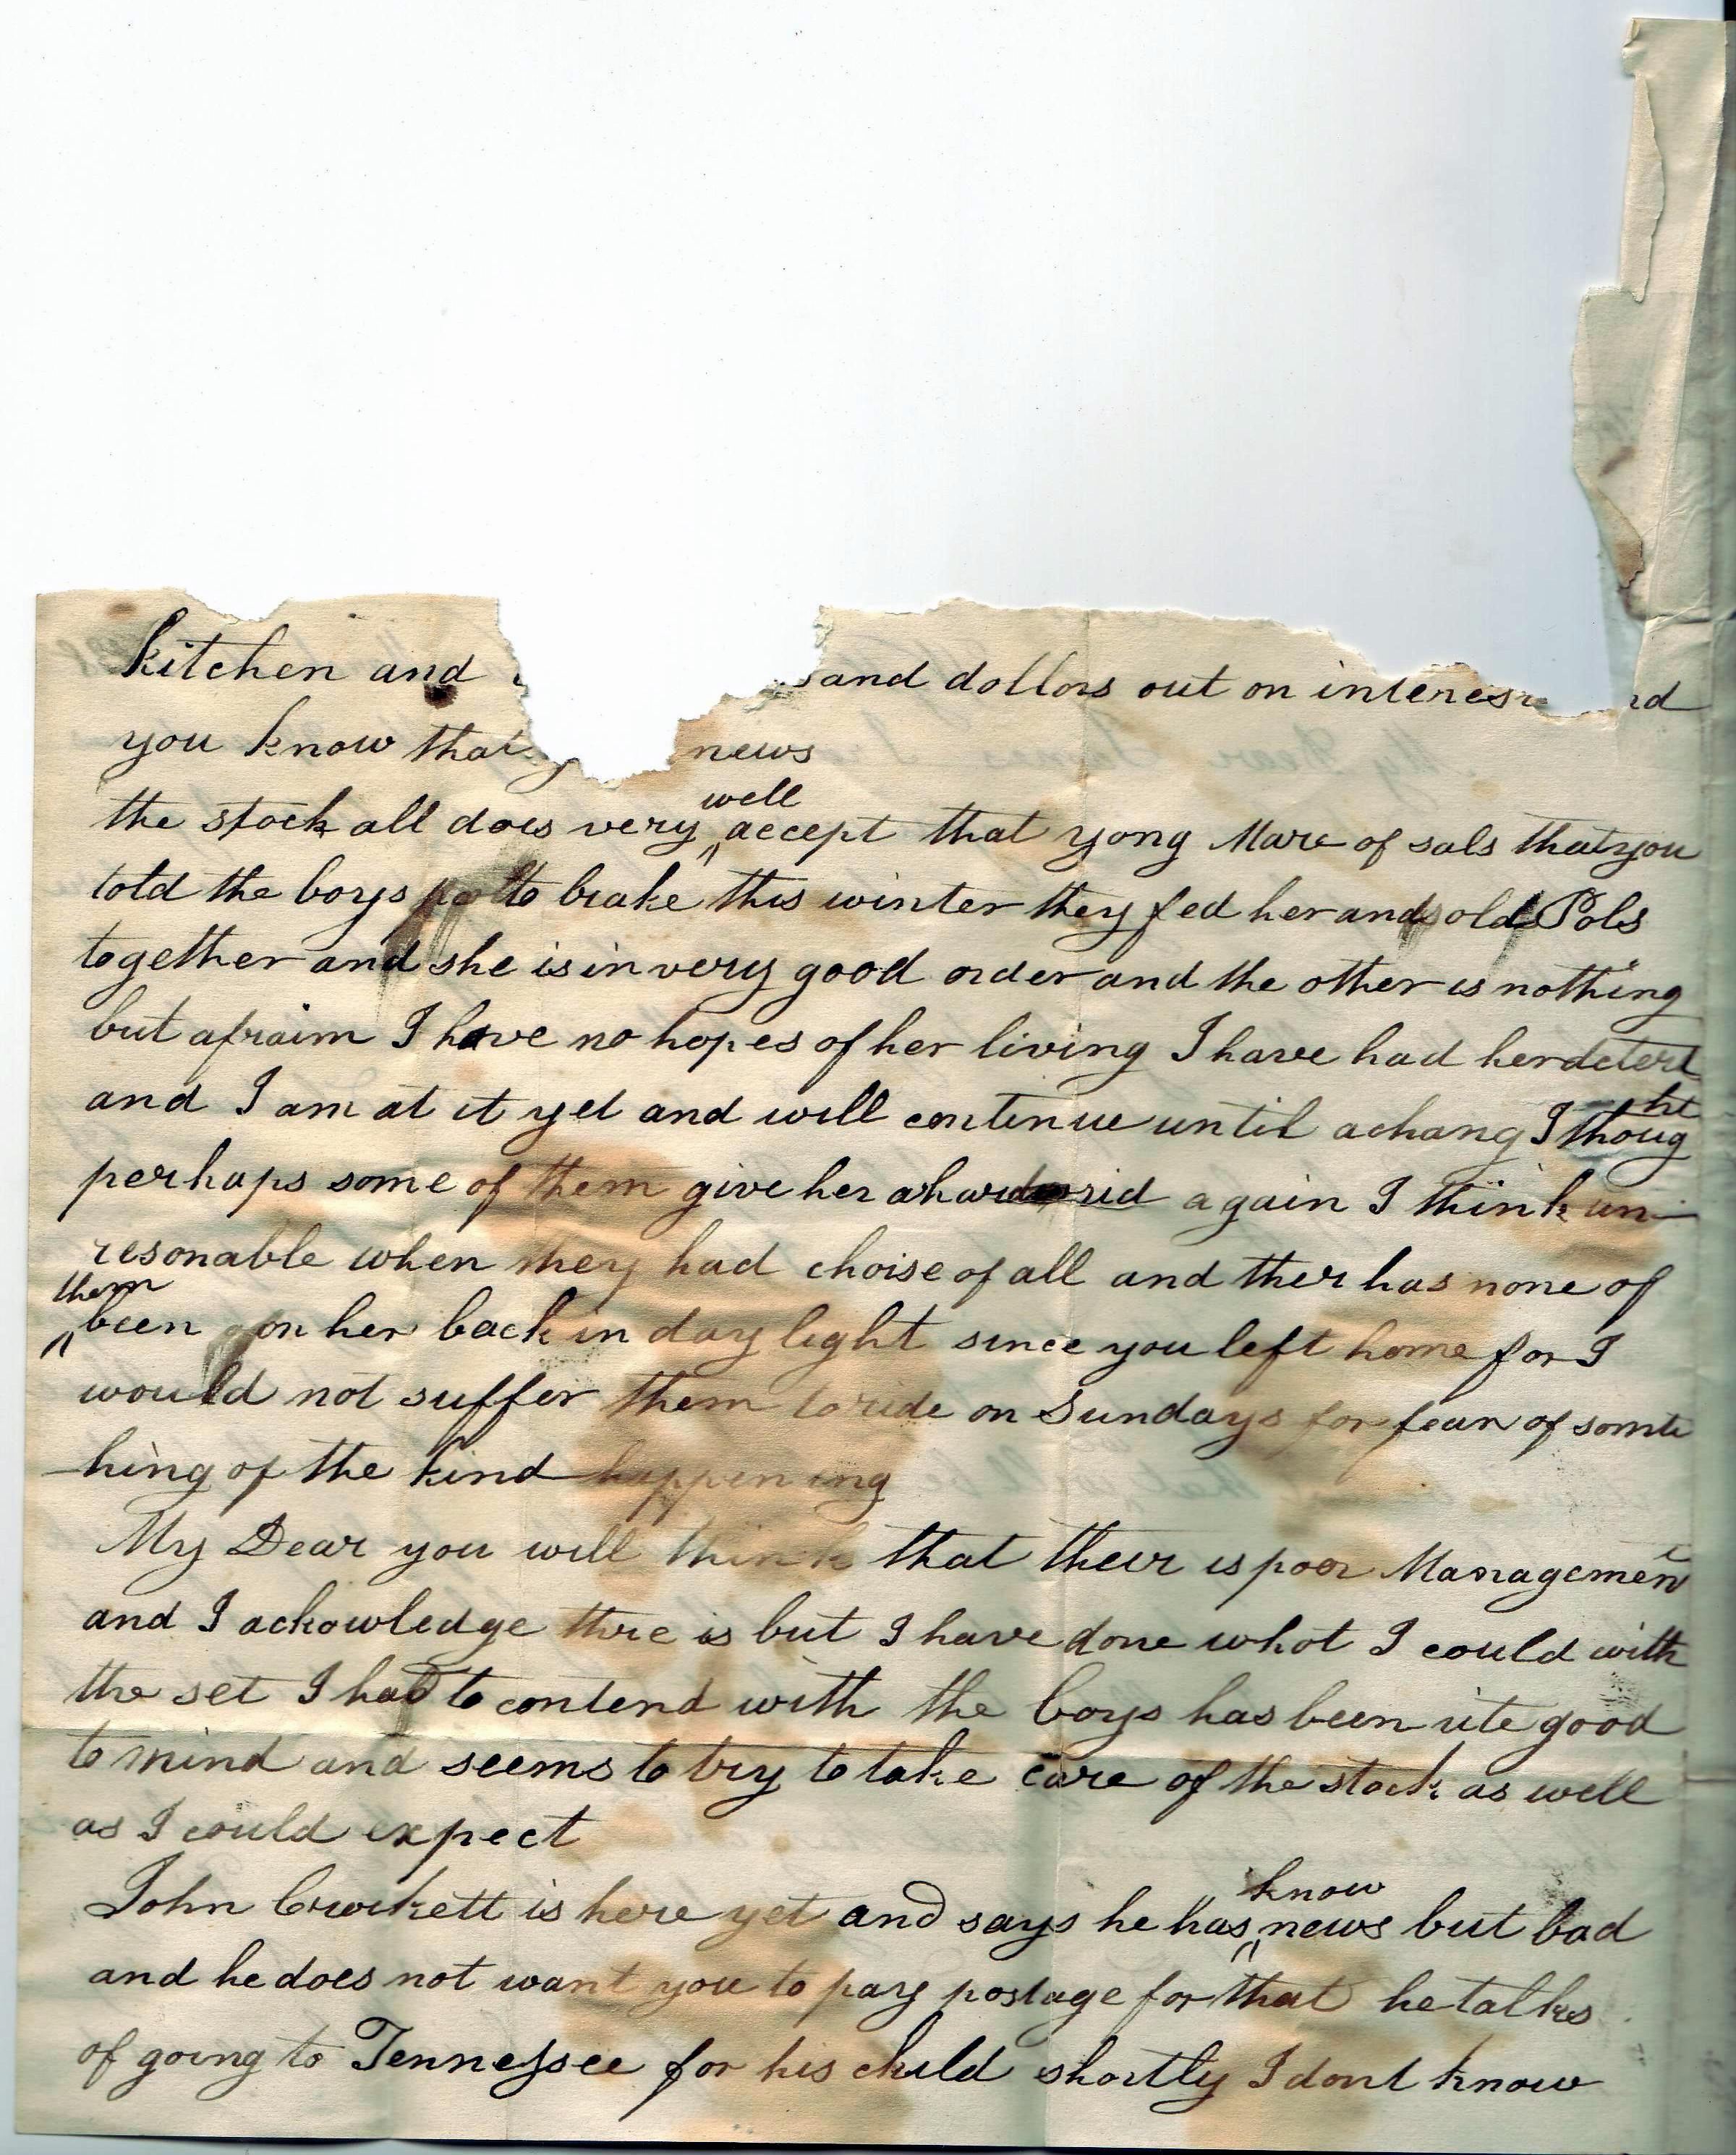 kitchen and sand dollars out on interest nd
you know that news
the stock all does very well accept that yong Mare of sals that you
told the boys not to brake this winter they fed her and old Pols
together and she is in very good order and the other is nothing
but afraim I have no hopes of her living I have had her
and I am at it yet and will continue until a chang I thought
perhaps some of them give her a hard rid again I think un-
resonable when they had choise of all and ther has none of
them been on her back in day light since you left home for I
would not suffer them to ride on Sundays for fear of somt
-hing of the kind happening
My Dear you will think that theur is poor Management
and I ackowledge thire is but I have done whot I could with
the set I had to contend with the boys has been rite good
to mind and seems to try to take care of the stock as well
as I could expect
John Crockett is here yet and says he has know news but bad
and he does not want you to pay postage for that he talks
of going to Tennessee for his child shortly I dont know